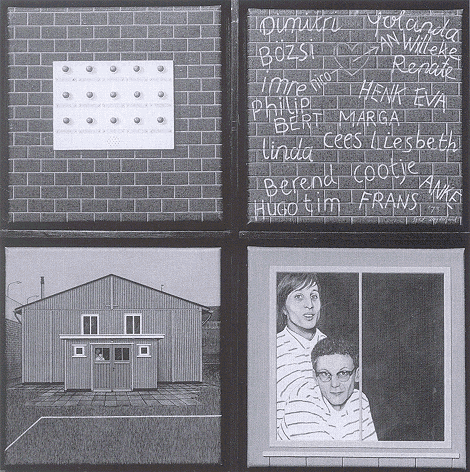 Dimitri Yolanda
BOZSI AN Willeke
Renate
imre hiro HENK EVA
Philip
BERT MARGA
linda Cees Liesbeth
Berend Cootje ANKE
HUGO tim FRANS